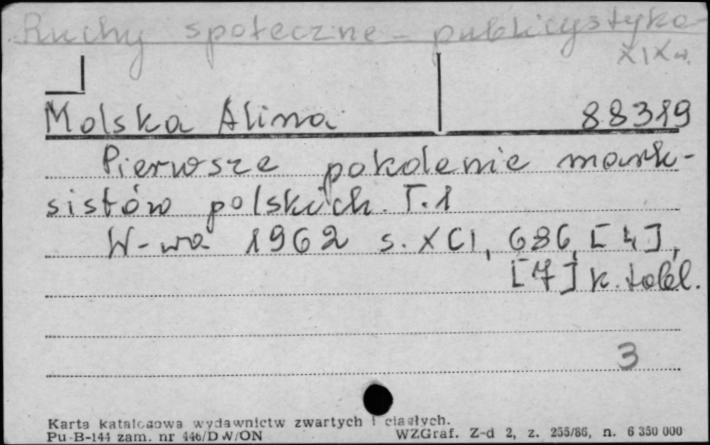 Ruchy społeczne - publicystyka
XIX w.
Molska Alina 88319
Pierwsze pokolenie mark-
sistów polskich. T.1
W-wa 1962 s. XCI, 686, [4],
[7] k. tabl.
3
Karta katalogowa wydawnictw zwartych i ciągłych.
Pu-B-144 zam. nr 446/DW/ON WZGraf. Z-d 2, z. 255/86, n. 6 350 000